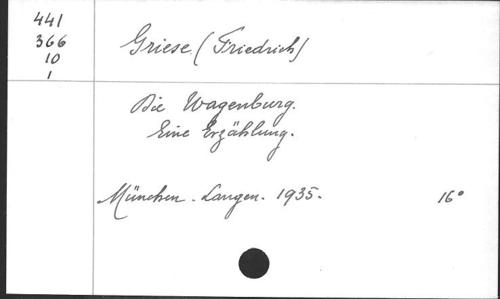 441
366
10
1
Griese (Friedrich)
Die Wagenburg.
Eine Erzählung.
München. Langen. 1935. 16°